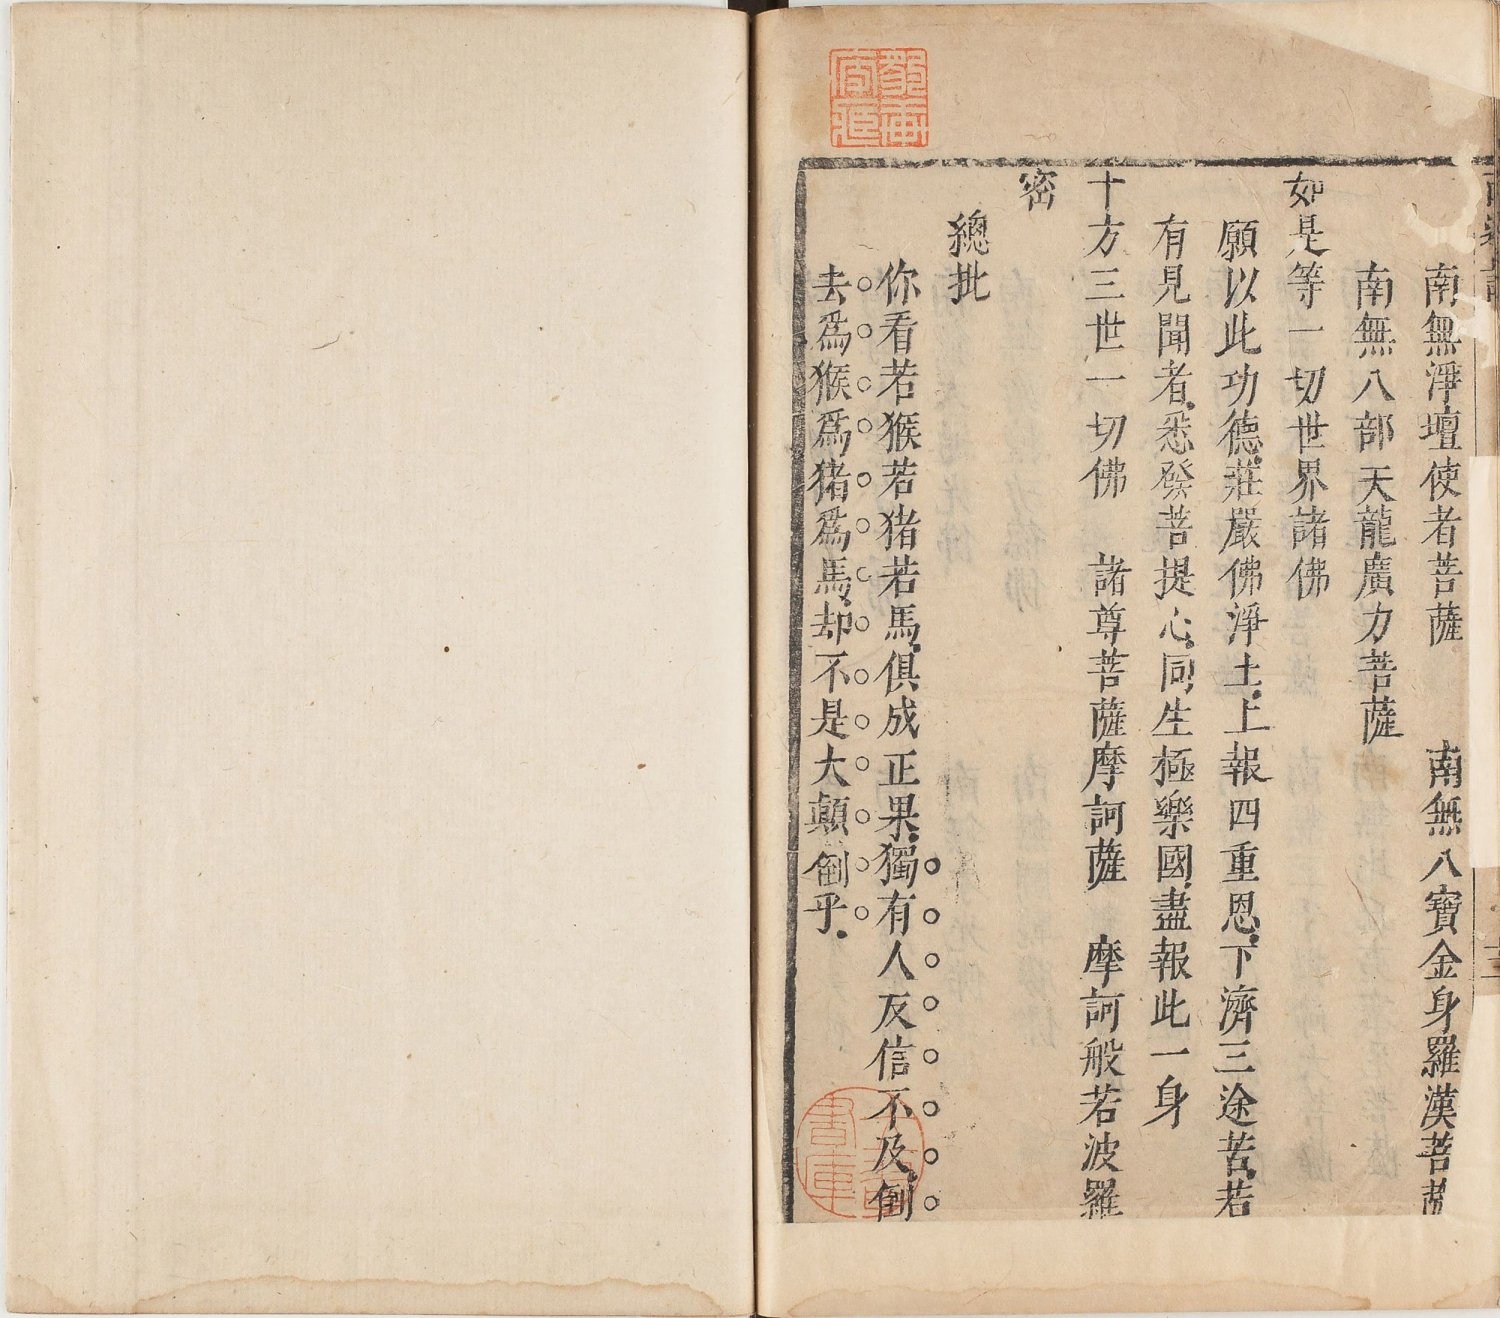 南無淨壇使者菩薩　南無八寶金身羅漢菩薩
南無八部天龍廣力菩薩
如是等一切世界諸佛
願以此功德莊嚴佛淨土上報四重恩下濟三途苦若
有見聞者悉發菩提心同生極樂國盡報此一身
十方三世一切佛　諸尊菩薩摩訶薩　摩訶般若波羅
密
總批
你看若猴若猪若馬俱成正果獨有人反信不及倒
去爲猴爲猪爲馬却不是大顛倒乎